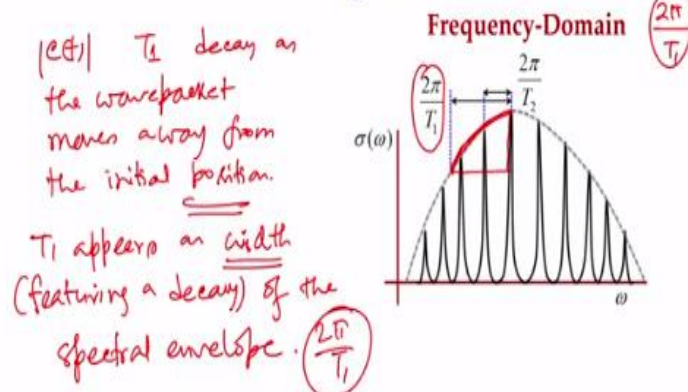 |C(t)| T1 decay as
the wavepacket
moves away from
the initial position.
T1 appears as width
(featuring a decay) of the
spectral envelope. 2π/T1
Frequency-Domain 2π/T1
2π/T1
2π/T2
σ(ω)
ω